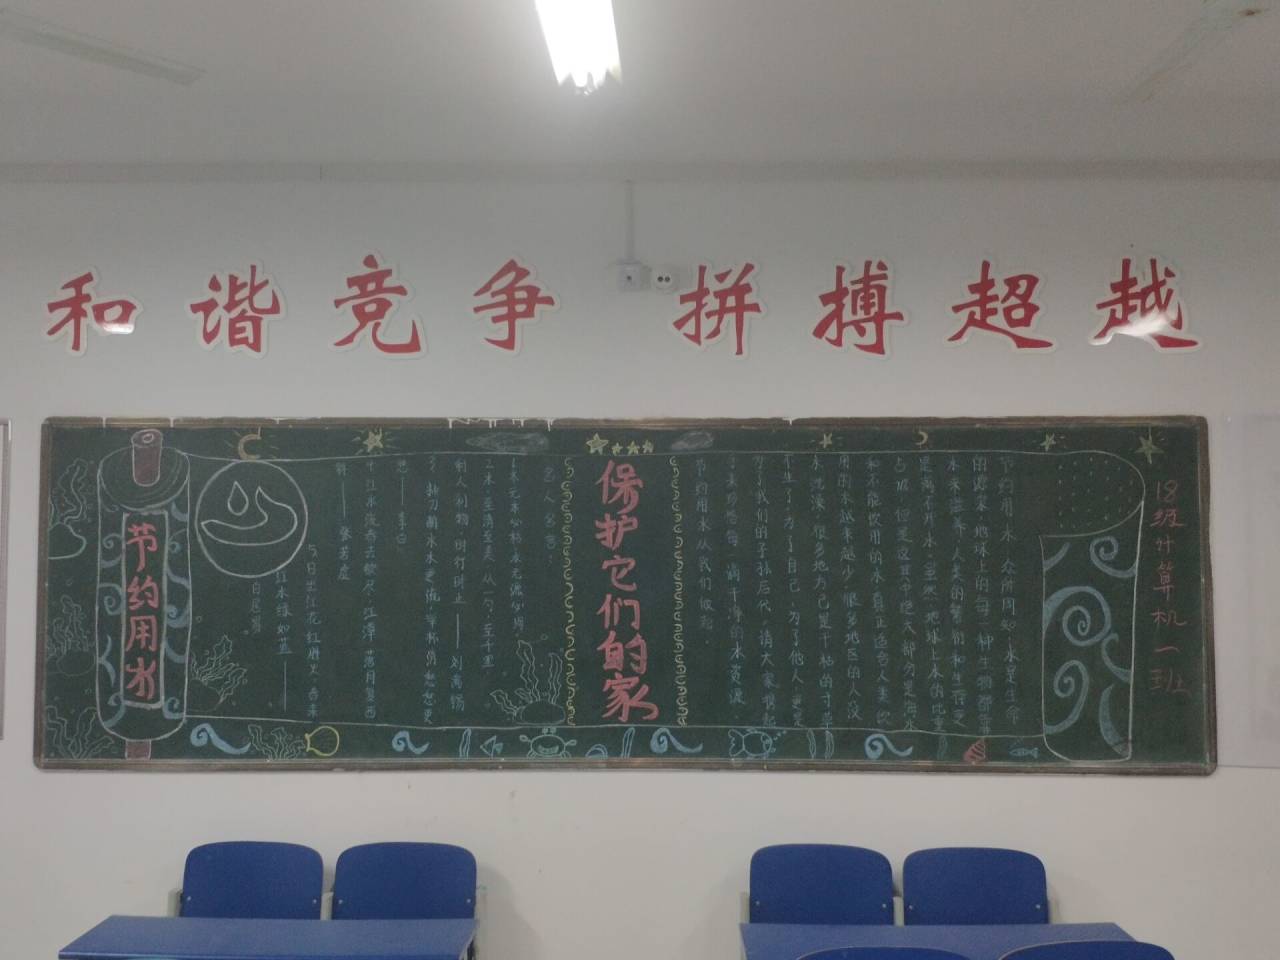 和谐竞争 拼搏超越
18级计算机一班
节约用水,众所周知,水是生命
的源泉,地球上的每一种生物都靠
水来滋养,人类的繁衍和生存更
是离不开水,虽然地球上水的比重
占
但是这其中绝大部分是海水
和不能饮用的水真正适合人类饮
用的水越来越少,很多地区的人没
水洗澡,很多地方已是干枯的寸草
不生了,为了自己,为了他人,更是
为了我们的子孙后代,请大家
珍惜每一滴干净的水资源,
节约用水从我们做起.
保护它们的家
名人名言:
水无心
二水,至清至美,从一勺,至千里
利人利物,时行时止——刘禹锡
3、抽刀断水水更流,举杯消愁愁更
愁——李白
4、江水流春去欲尽,江潭落月复西
斜——张若虚
5、日出江花红胜火,春来
江水绿如蓝——
白居易
节约用水